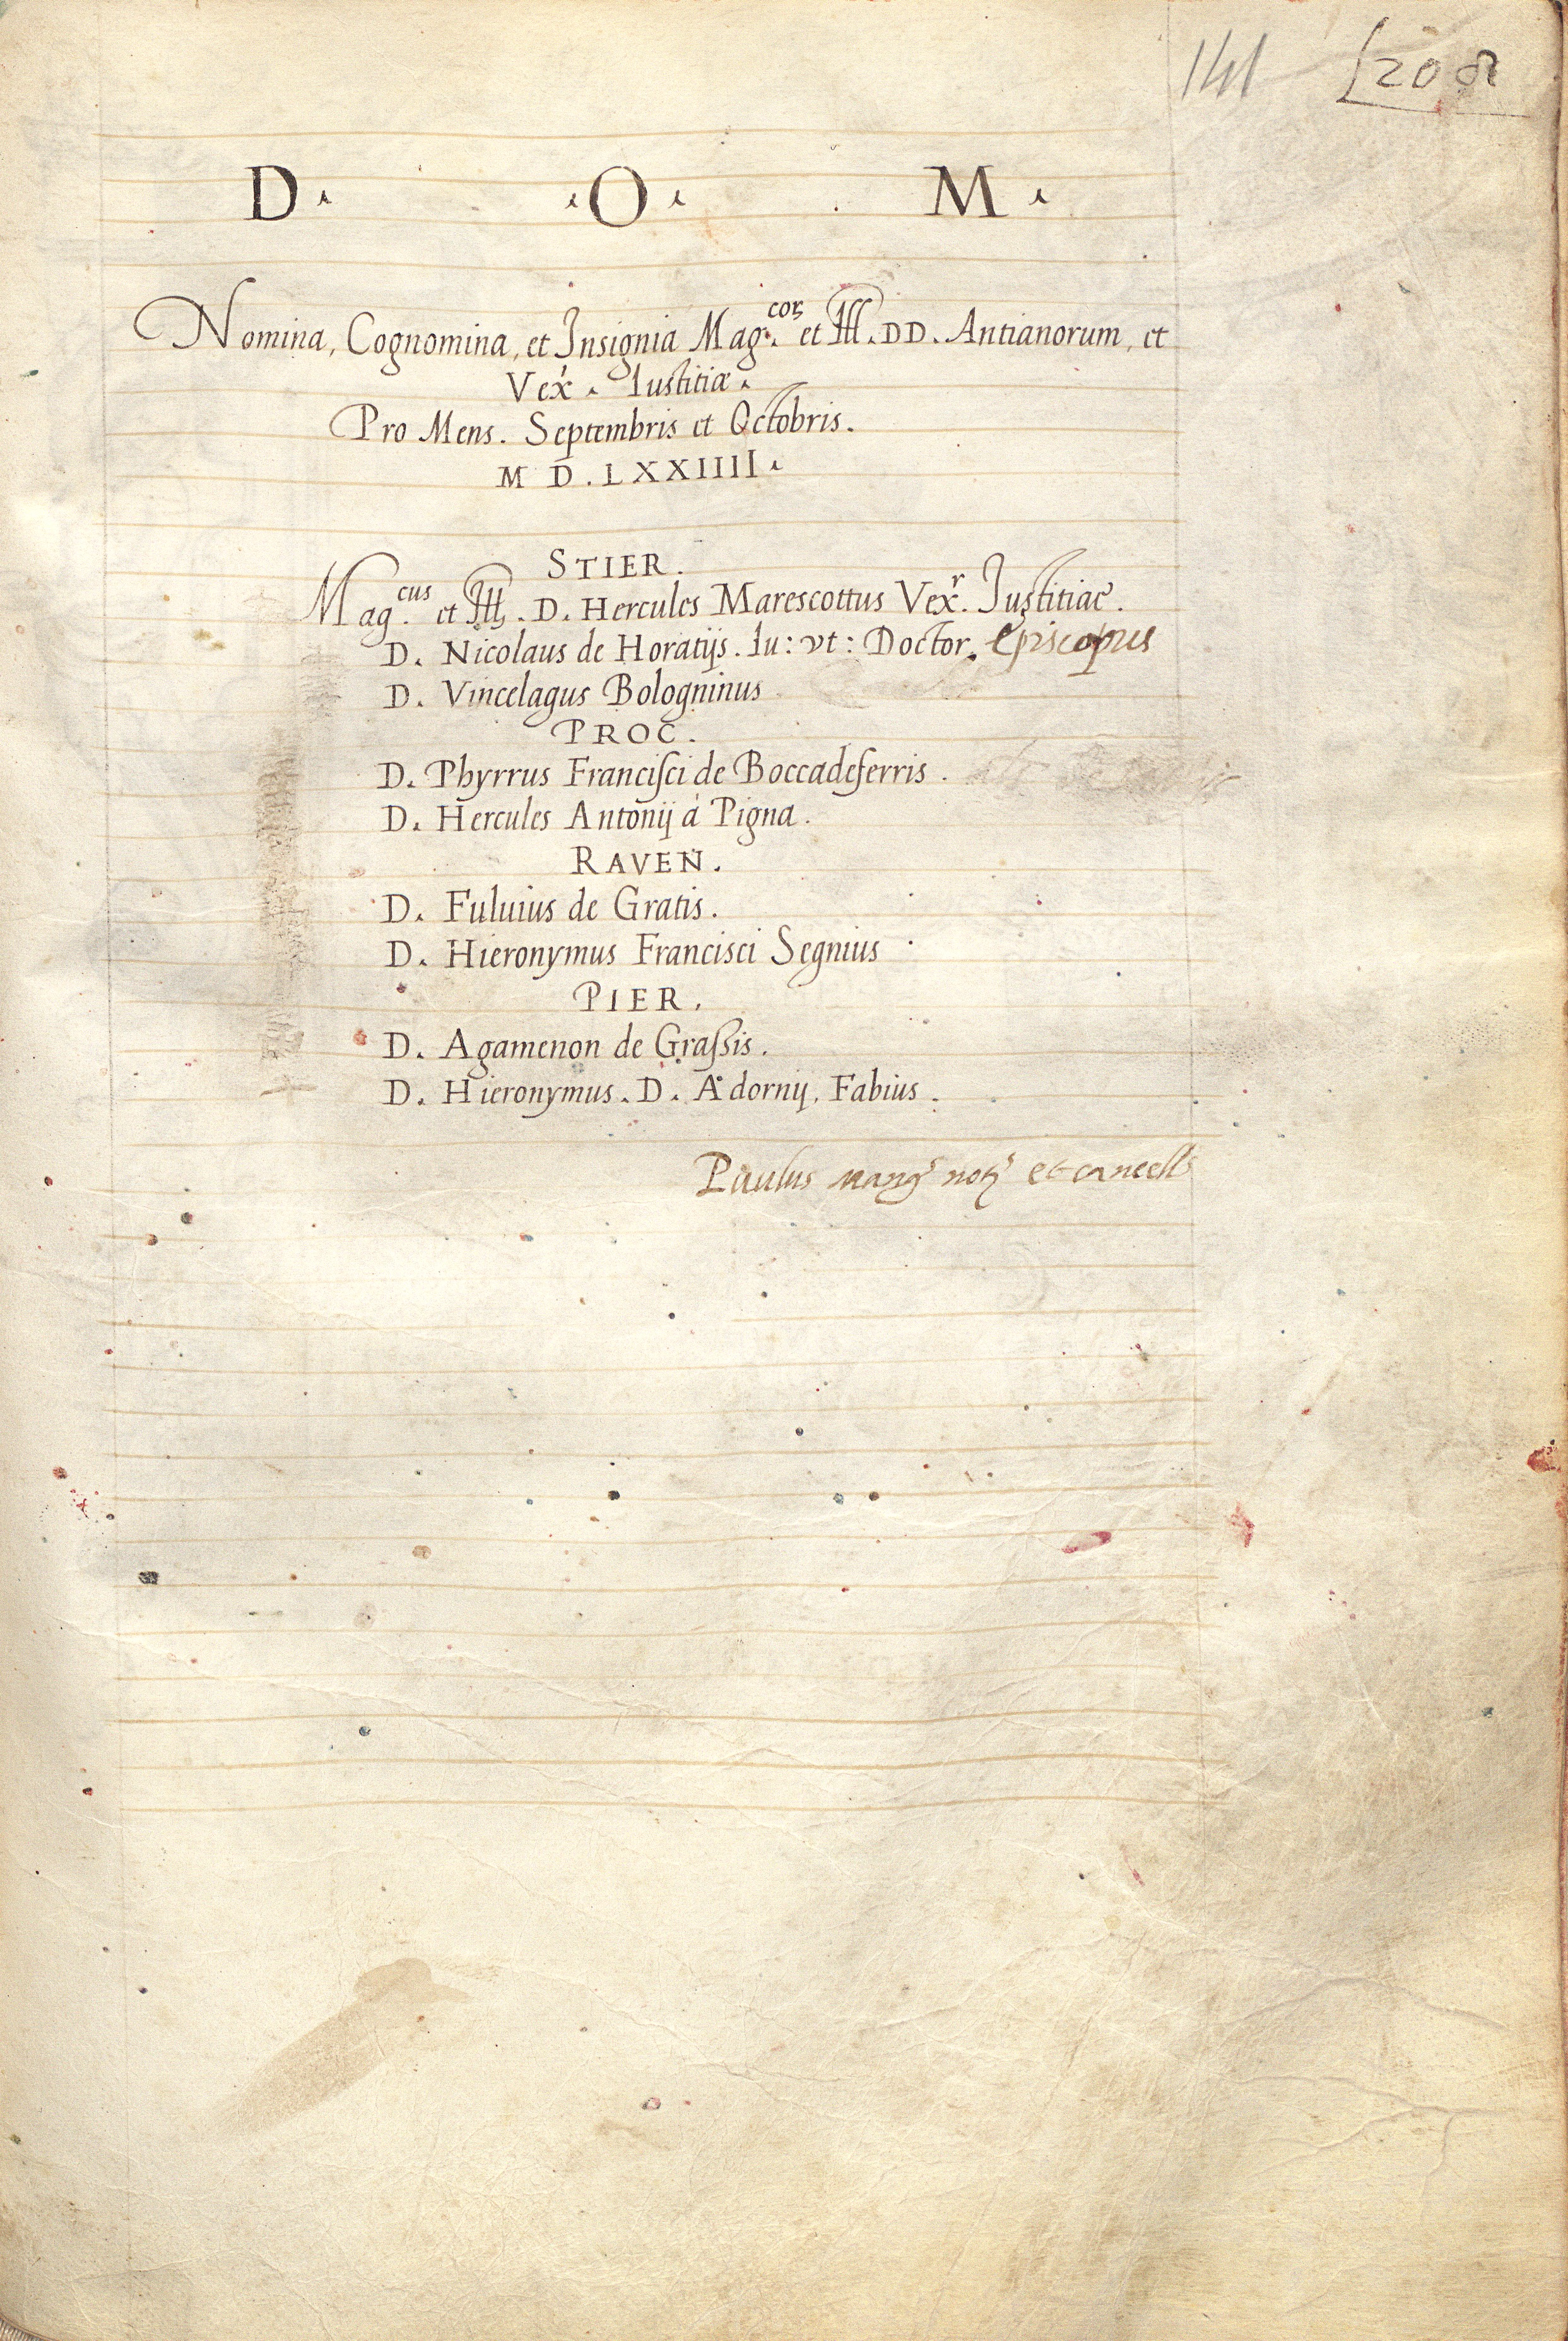 141 208
D. .O. M.
Nomina, Cognomina, et Insignia Mag.cor. et Ill. DD. Antianorum, et
Vex. Iustitiæ.
Pro Mens. Septembris et Octobris.
M D. LXXIIII.
STIER.
Mag.cus et Ill. D. Hercules Marescottus Vex.r Iustitiae.
D. Nicolaus de Horatijs. Iu: vt: Doctor. Episcopus
D. Vincelagus Bologninus
PROC.
D. Phyrrus Francisci de Boccadeferris.
D. Hercules Antonij à Pigna.
RAVEN.
D. Fuluius de Gratis.
D. Hieronymus Francisci Segnius
PIER.
D. Agamenon de Grassis.
D. Hieronymus. D. Adornij. Fabius.
Paulus not et cancell